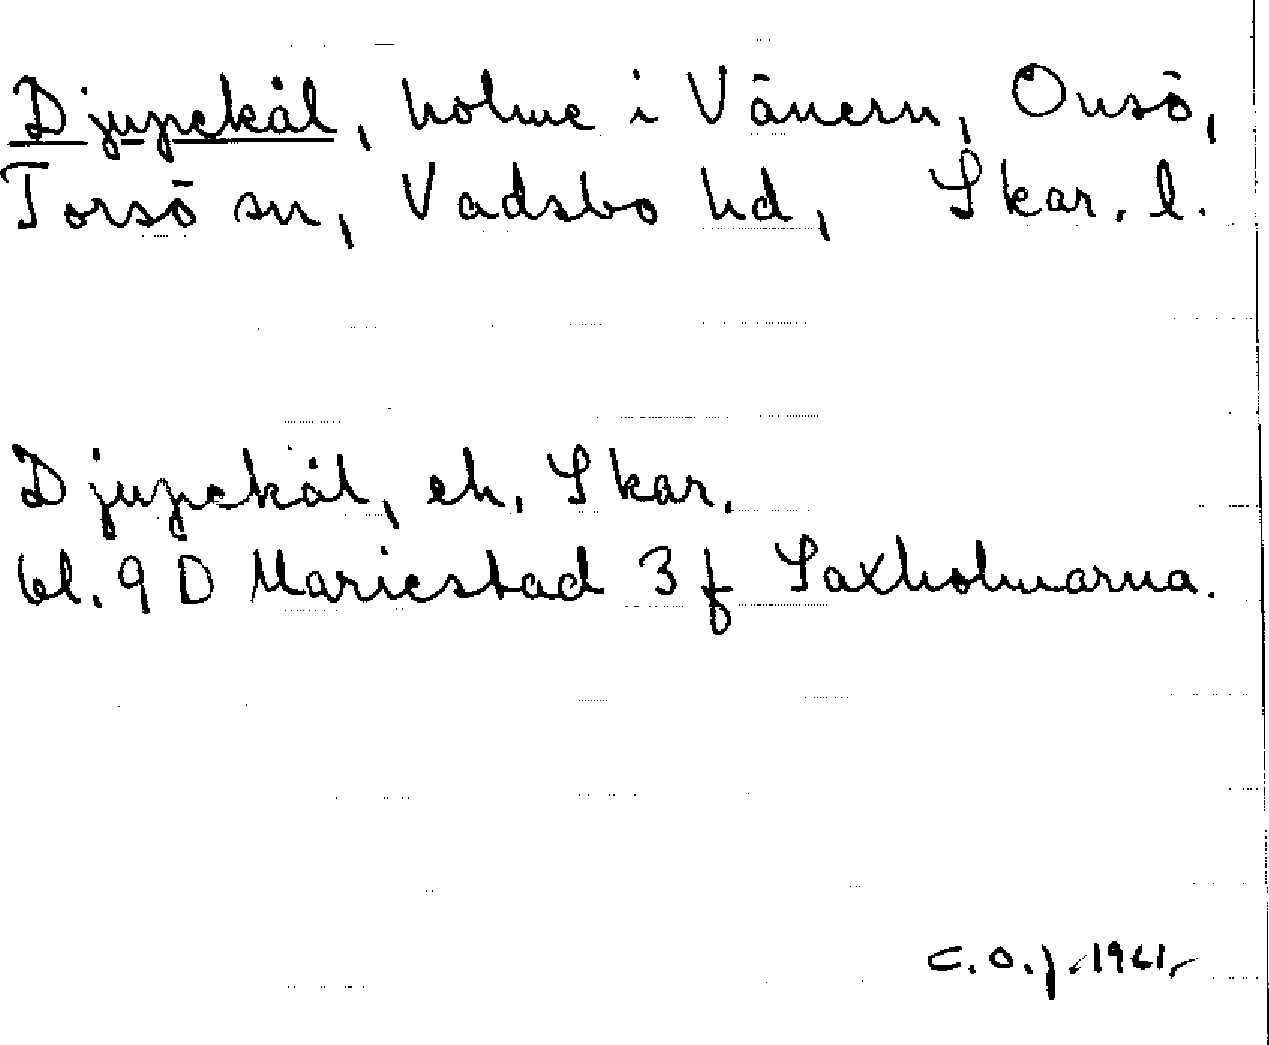 Djupekål, holme i Vänern, Onsö,
Torsö sn, Vadsbo hd, Skar. l.
Djupekål, ek, Skar.
bl. 9 D Mariestad 3 f Saxholmarna.
C.O.J. 1961